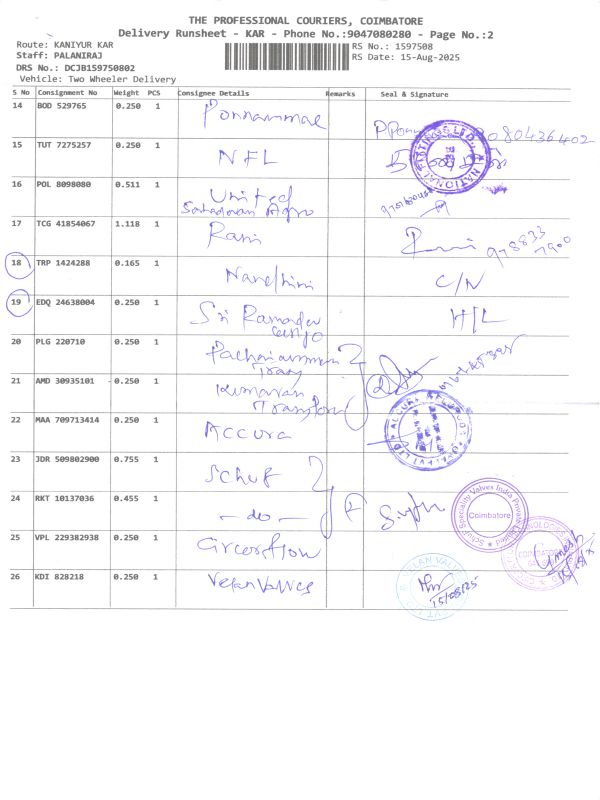 THE PROFESSIONAL COURIERS, COIMBATORE
Delivery Runsheet - KAR - Phone No.:9047080280 - Page No.:2
Route: KANIYUR KAR
RS No.: 1597508
Staff: PALANIRAJ
RS Date: 15-Aug-2025
DRS No.: DCJB159750802
Vehicle: Two Wheeler Delivery
S No Consignment No Weight PCS Consignee Details Remarks Seal & Signature
14 BOD 529765 0.250 1 Ponnammae
15 TUT 7275257 0.250 1 NFL
16 POL 8098080 0.511 1 United
Agro
17 TCG 41854067 1.118 1 Rani
18 TRP 1424288 0.165 1 Nandhini C/N
19 EDQ 24638004 0.250 1 Sri Ramadev H/L
cargo
20 PLG 220710 0.250 1 Pachaiamman
Trans
21 AMD 30935101 0.250 1 Kumaran
Transport
22 MAA 709713414 0.250 1 Accura
23 JDR 509802900 0.755 1 Schuf
24 RKT 10137036 0.455 1 - do -
Schuf Speciality Valves India Private Limited
Coimbatore
25 VPL 229382938 0.250 1 Circor flow
26 KDI 828218 0.250 1 Velan Valves
15/08/25